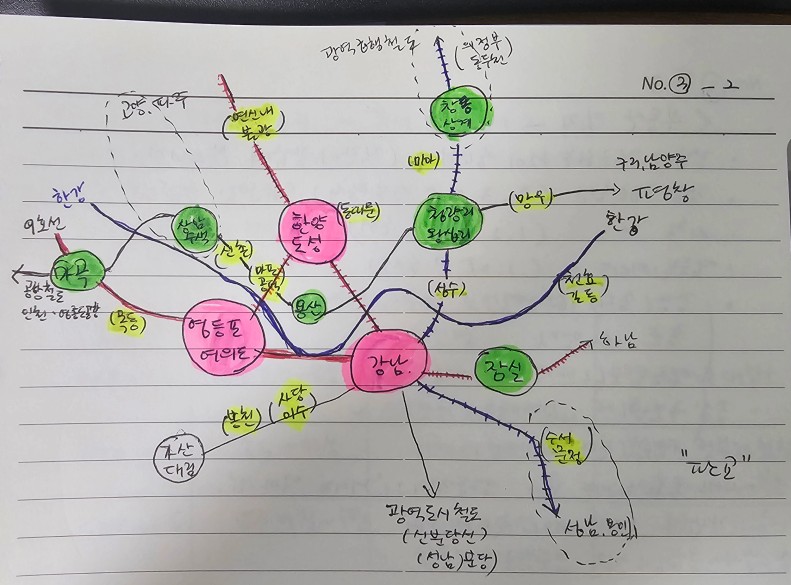 No. ③ - 2
광역급행철도
(의정부
동두천)
창동
상계
고양, 파주
연신내
불광
(미아)
구리,남양주
한강
(망우)
한양
도성
(동대문)
청량리
왕십리
한강
9호선
상암
수색
신촌
마곡
마포
공덕
용산
(성수)
천호
길동
공항철도
(목동)
영등포
여의도
강남.
잠실
하남
사당
이수
봉천
가산
대림
(수서
문정)
"판교"
성남, 용인
광역도시철도
(신분당선)
(성남)분당